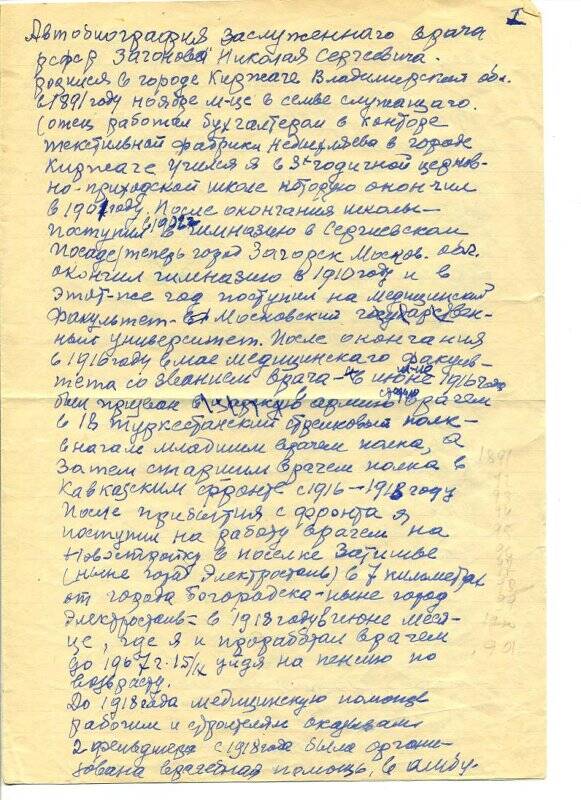 1
Автобиография заслуженнаго врача
РСФСР Загонова Николая Сергеевича.
родился в городе Киржаче Владимирской обл.
в 1891 году ноябре м-це в семье служащаго.
(отец работал бухгалтером в конторе
текстильной фабрики в городе
Киржаче учился я в 3х годичной церков-
но-приходской школе которую окончил
в 1901 году. После окончания школы
поступил в 1902г в гимназию в Сергиевском
Посаде/теперь город Загорск Москов. обл.
окончил гимназию в 1910 году и в
этот-же год поступил на медицинский
факультет в Московский государствен-
ный университет. После окончания
в 1916 году в мае медицинскаго факуль-
тета со званием врача в июне 1916 года
был призван в армию врачем
в 13 Туркестанский стрелковый полк
вначале младшим врачем полка, а
затем старшим врачем полка в
Кавказским фронте с 1916-1918 году
После прибытия с фронта я
поступил на работу врачем на
Новостройку в поселке Затишье
(ныне город Электросталь) в 7 километрах
от города Богородска-ныне город
Электросталь в 1918 году в июне меся-
це, где я и проработал врачем
до 1967 г. 15/IX уйдя на пенсию по
возврасту.
До 1918 года медицинскую помощь
рабочим и строителям оказывали
2 фельдшера с 1918 года была органи-
зована врачебная помощь, в амбу-